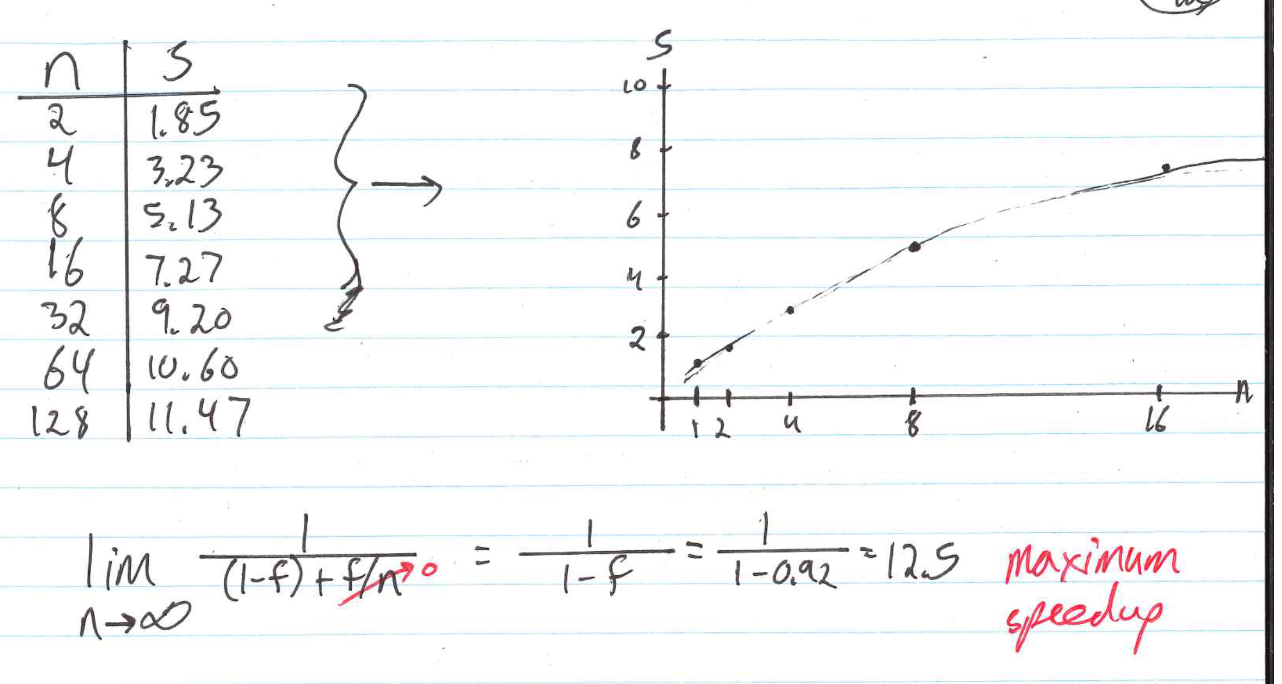 n S
2 1.85
4 3.23
8 5.13
16 7.27
32 9.20
64 10.60
128 11.47
S
10
8
6
4
2
1 2 4 8 16 n
lim n→∞ 1/((1-f) + f/n→0) = 1/(1-f) = 1/(1-0.92) = 12.5 maximum
speedup